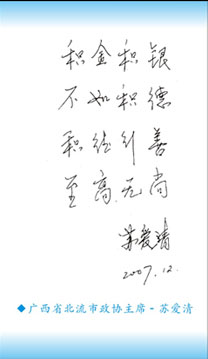 积金积银
不如积德
积德引善
至高无尚
苏爱清
2007.12.
◆广西省北流市政协主席-苏爱清